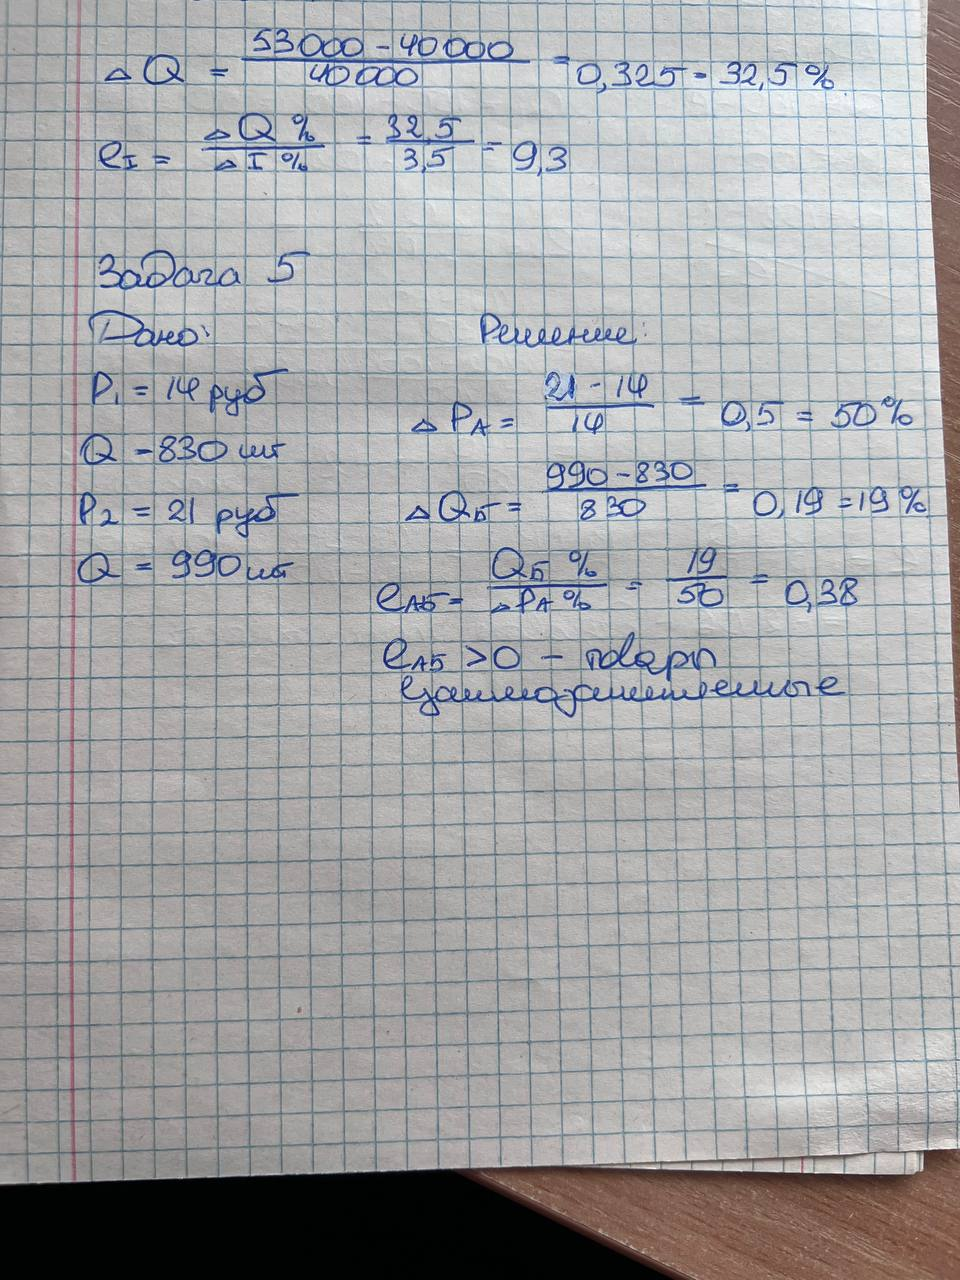 △Q = 53000 - 40000 / 40000 = 0,325 - 32,5%
eI = △Q % / △I % = 32,5 / 3,5 = 9,3
Задача 5
Дано:
P1 = 14 руб
Q - 830 шт
P2 = 21 руб
Q = 990 шт
Решение:
△PА = 21 - 14 / 14 = 0,5 = 50%
△QБ = 990 - 830 / 830 = 0,19 = 19%
eАБ = QБ % / △PА % = 19 / 50 = 0,38
eАБ > 0 - товары
взаимозаменяемые